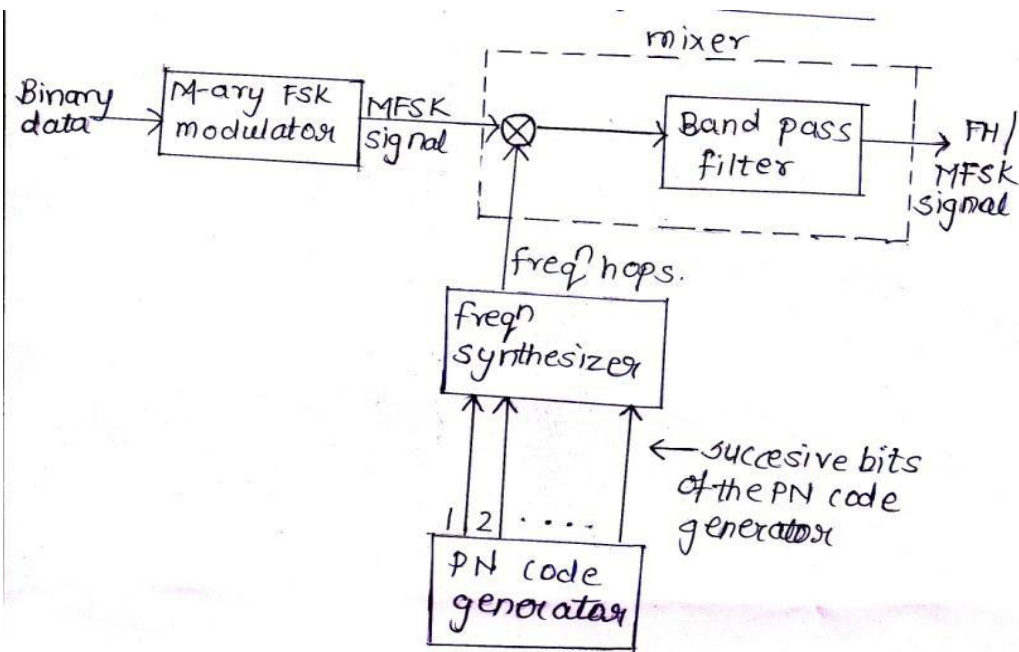 mixer
Binary
data
M-ary FSK
modulator
MFSK
signal
Band pass
filter
FH/
MFSK
signal
freqⁿ hops.
freqⁿ
synthesizer
← succesive bits
of the PN code
generator
1 2 ....
PN code
generator